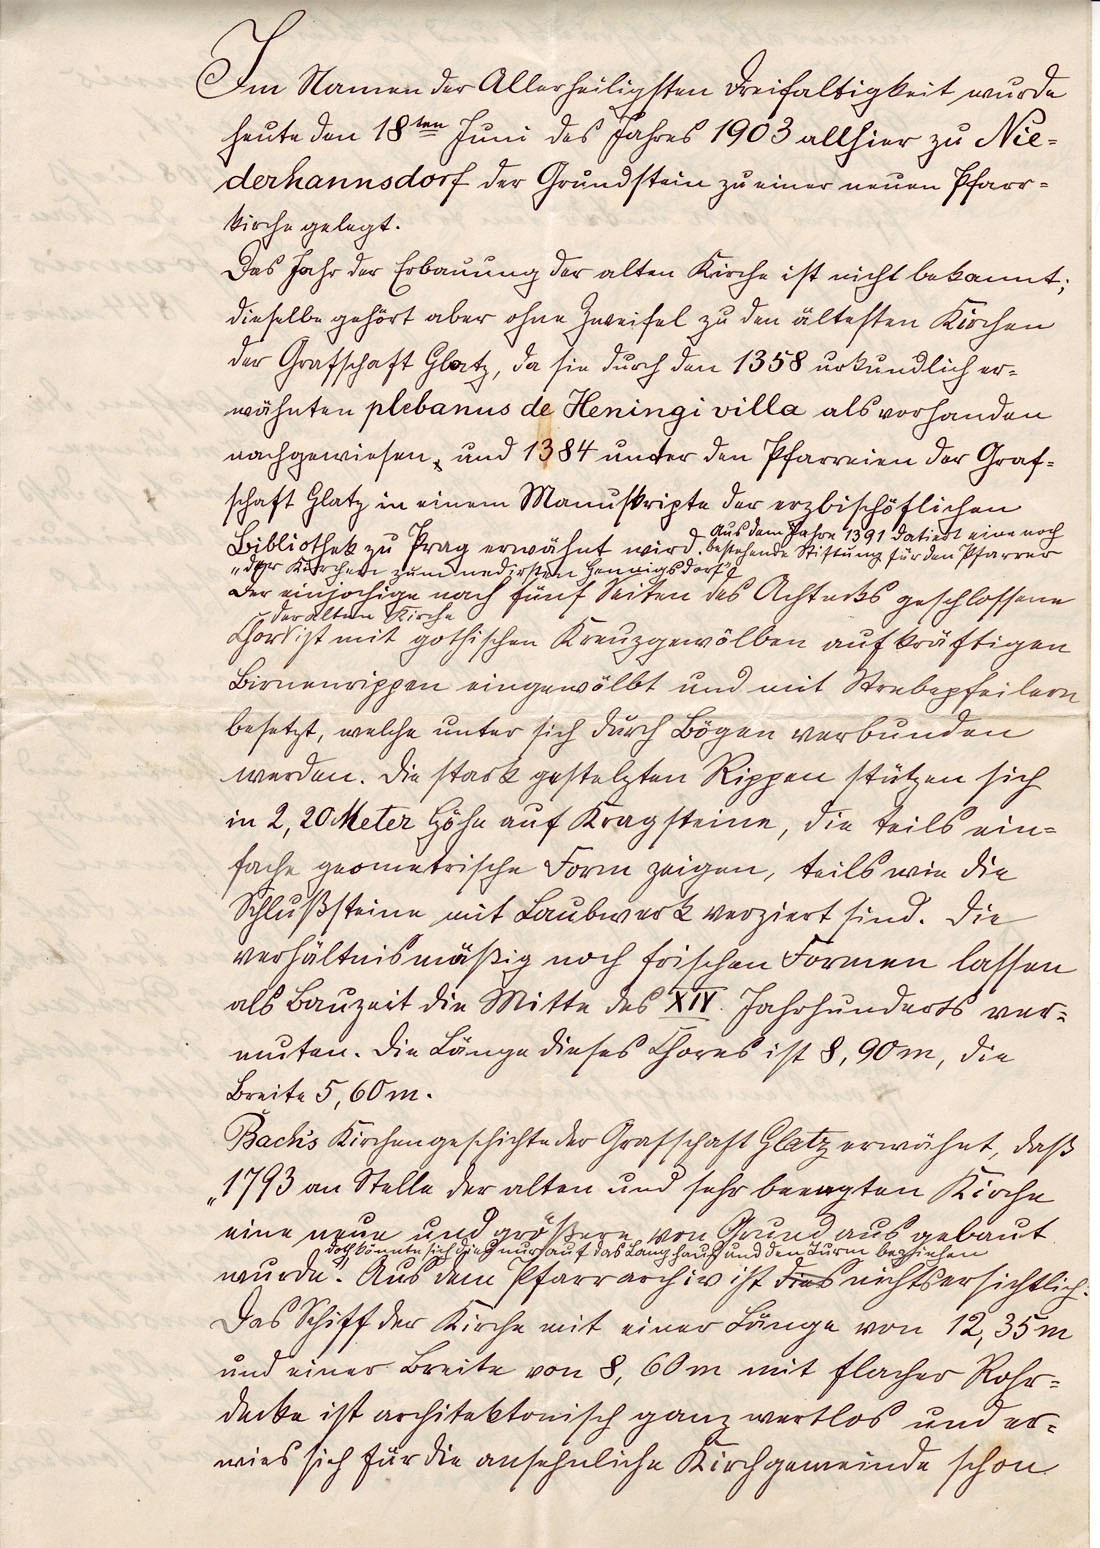 Im Namen der Allerheiligsten Dreifaltigkeit wurde
heute den 18ten Juni des Jahres 1903 allhier zu Nie=
derhannsdorf der Grundstein zu einer neuen Pfarr=
kirche gelegt.
Das Jahr der Erbauung der alten Kirche ist nicht bekannt;
dieselbe gehört aber ohne Zweifel zu den ältesten Kirchen
der Grafschaft Glatz, da sie durch den 1358 urkundlich er=
wähnten plebanus de Heningi villa als vorhanden
nachgewiesen, und 1384 unter den Pfarreien der Graf=
schaft Glatz in einem Manuskripte der erzbischöflichen
Aus dem Jahre 1391 datiert eine noch
Bibliothek zu Prag erwähnt wird. bestehende Stiftung für den Pfarrer
„der Kirchen zum nedirsten Hennigsdorf“
Der einjochige nach fünf Seiten des Achtecks geschlossene
der alten Kirche
Chor ist mit gothischen Kreuzgewölben auf kräftigen
Birnenrippen eingewölbt und mit Strebepfeilern
besetzt, welche unter sich durch Bögen verbunden
werden. Die stark gestelzten Rippen stützen sich
in 2,20 Meter Höhe auf Kragsteine, die teils ein=
fache geometrische Form zeigen, teils wie die
Schlußsteine mit Laubwerk verziert sind. Die
verhältnismäßig noch frischen Formen lassen
als Bauzeit die Mitte des XIV. Jahrhunderts ver=
muten. Die Länge dieses Chores ist 8,90 m, die
Breite 5,60 m.
Bach's Kirchengeschichte der Grafschaft Glatz erwähnt, daß
„1793 an Stelle der alten und sehr beengten Kirche
eine neue und größere von Grund aus gebaut
doch könnte sich dies nur auf das Langhaus und den Turm beziehen
wurde“. Aus dem Pfarrarchiv ist dies nichts ersichtlich.
Das Schiff der Kirche mit einer Länge von 12,35 m
und einer Breite von 8,60 m mit flacher Rohr=
decke ist architektonisch ganz wertlos und er=
wies sich für die ansehnliche Kirchgemeinde schon